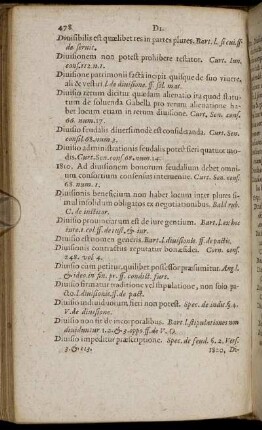 478 DI.
Diuisibilis est quælibet res in partes plures. Bart. l. si cui. ff.
de seruit.
Diuisionem non potest prohibere testator. Curt. Iun.
cons. 112. n. 1.
Diuisione patrimonij facta incipit quisque de suo viuere,
ali & vestiri l. de diuisione. ff. sol. mat.
Diuisio rerum dicitur quædam alienatio ita quod statu-
tum de soluenda Gabella pro rerum alienatione ha-
bet locum etiam in rerum diuisione. Curt. Sen. cons.
66. num. 17.
Diuisio feudalis diuersimodè est consideranda. Curt. Sen.
consil. 68. num. 3.
Diuisio administrationis feudalis potest fieri quatuor mo-
dis. Curt. Sen. cons. 68. num. 14.
1810. Ad diuisionem bonorum feudalium debet omni-
um consortium consensus interuenire. Curt. Sen. cons.
68. num. 1.
Diuisionis beneficium non habet locum inter plures si-
mul insolidum obligatos ex negotiationibus. Bald. rub.
C. de institut.
Diuisio prouinciarum est de iure gentium. Bart. l. ex hoc
iure. 1. col. ff. de iust. & iur.
Diuisio est nomen generis. Bart. l. diuisionis. ff. de pactis.
Diuisionis contractus reputatur bonæ fidei. Corn. cons.
248. vol. 4.
Diuisio cum petitur, quilibet possessor præsumitur. Angl.
& ideo in fin. pr. ff. condict. furt.
Diuisio firmatur traditione vel stipulatione, non solo pa-
cto. l. diuisionis. ff. de pact.
Diuisio indiuiduarum, fieri non potest. Spec. de iudic. §. 4.
V. de diuisione.
Diuisio non fit de incorporalibus. Bart. l. stipulationes non
diuiduntur 1. 2. & 3. oppo. ff. de V. O.
Diuisio impeditur præscriptione. Spec. de feud. §. 2. Vers.
3. & 113.
1820. Di-